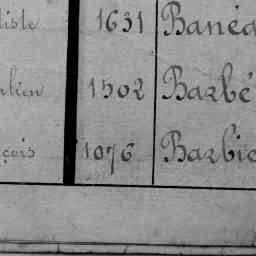 tiste 1631 Banéa
ulien 1502 Barbé
çois 1076 Barbie